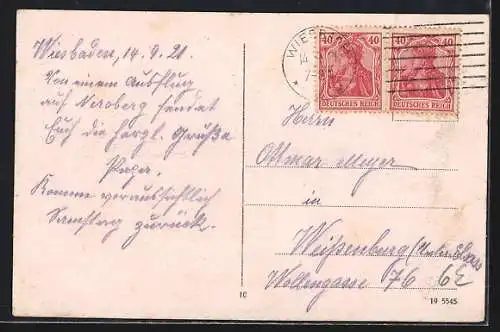 Wiesbaden, 14. 9. 21.
Von einem Ausflug
auf Neroberg sendet
Euch die herzl. Grüße
Papa.
Komme voraussichtlich
Samstag zurück.
WIESB
14
40 40
DEUTSCHES REICH
40 40
DEUTSCHES REICH
Herrn
Ottmar Meyer
in
Weißenburg (Unter Elsass
Wollengasse 76
1C
19 5545